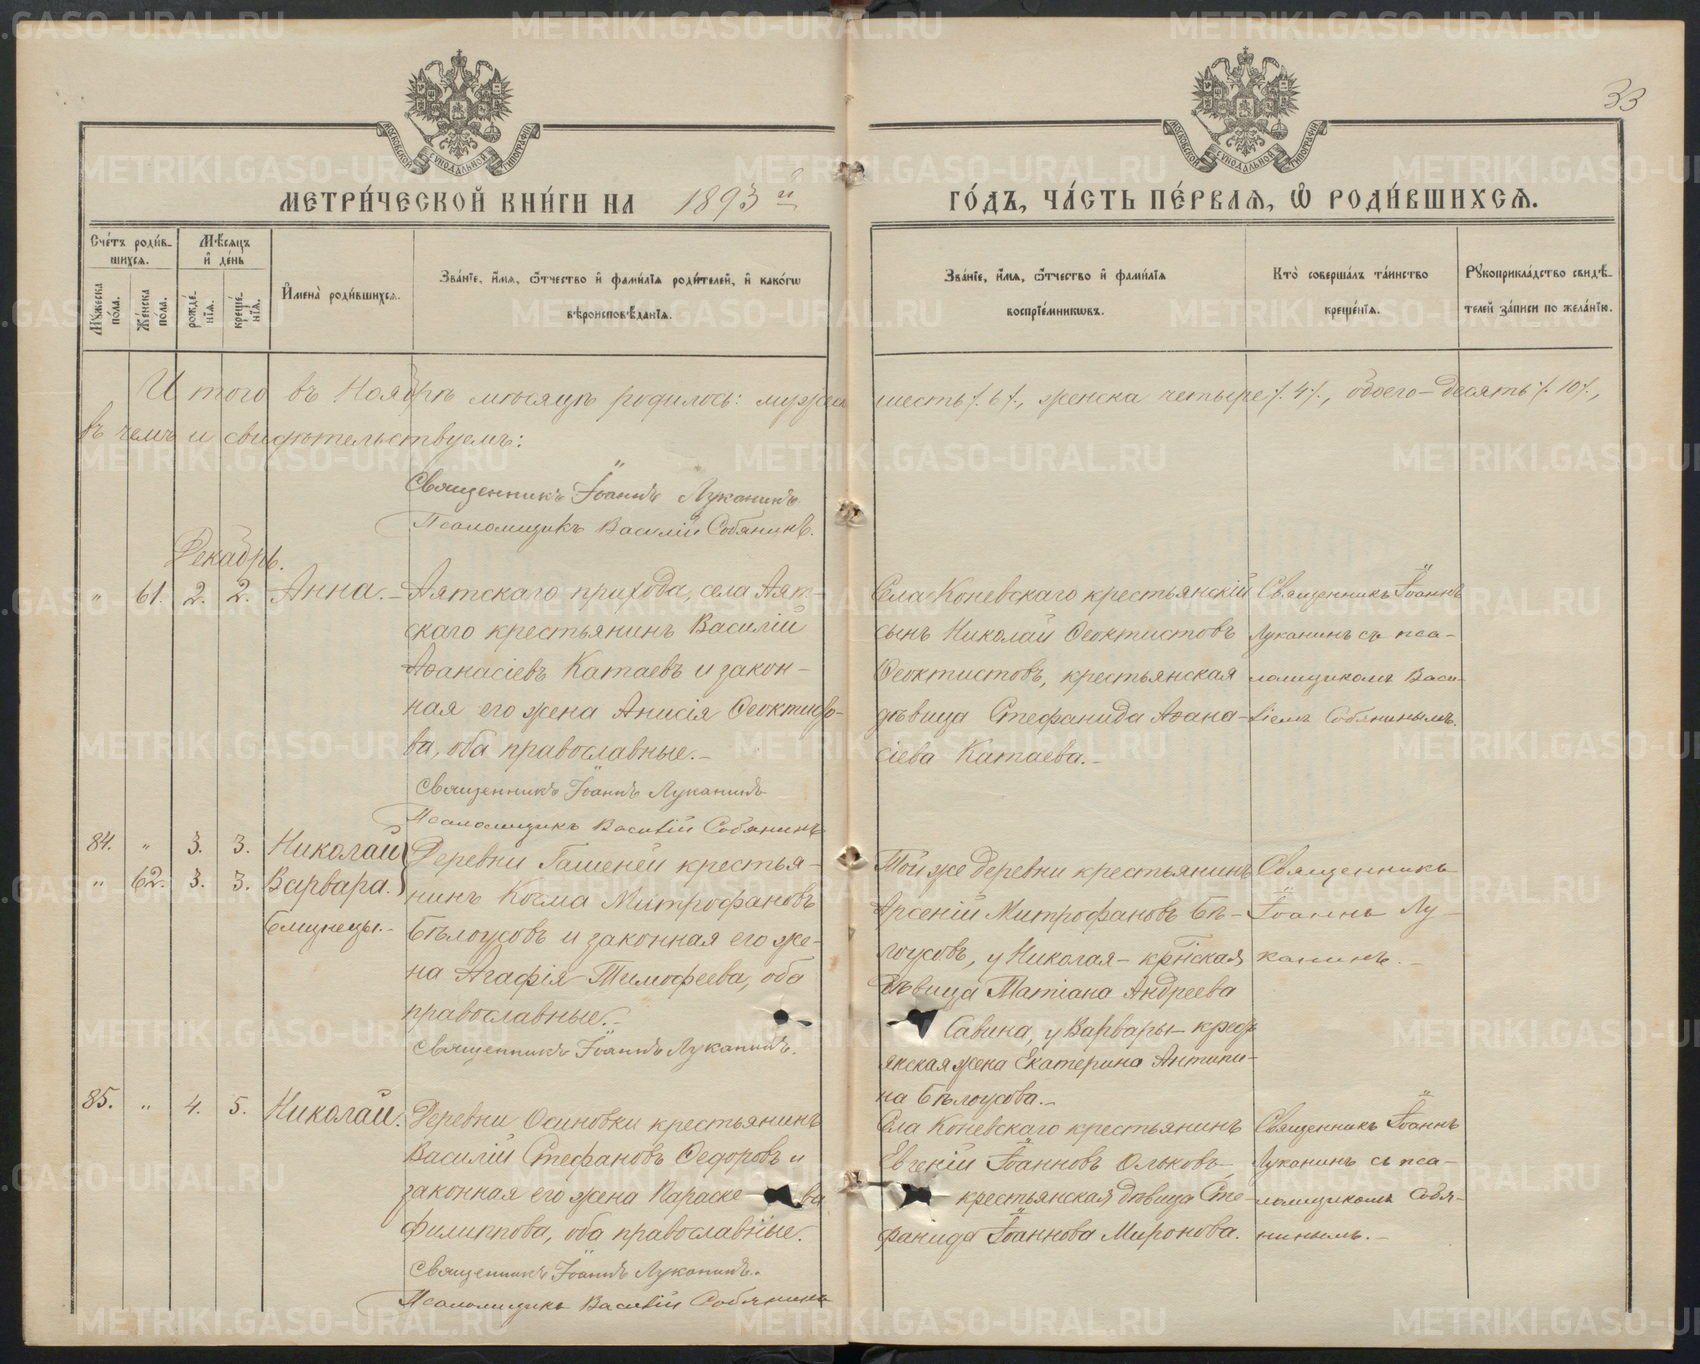 33
МОСКОВСКОЙ СѴНОДАЛЬНОЙ ТИПОГРАФІИ
МОСКОВСКОЙ СѴНОДАЛЬНОЙ ТИПОГРАФІИ
МЕТРИ́ЧЕСКОЙ КНИ́ГИ НА 1893 й
ГО́ДЪ, ЧА́СТЬ ПЕ́РВАѦ, Ѽ РОДИ́ВШИХСѦ.
Сче́тъ роди́в-
шихсѧ.
Мѣ́сѧцъ
и҆ де́нь
Мꙋ́жеска по́ла.
Же́нска по́ла.
рожде́-
нїѧ.
креще́-
нїѧ.
И҆мена̀ роди́вшихсѧ.
Зва́нїе, и҆́мѧ, ѻ҆́тчество и҆ фами́лїѧ роди́телей, и҆ како́гѡ
вѣроисповѣ́данїѧ.
Зва́нїе, и҆́мѧ, ѻ҆́тчество и҆ фами́лїѧ
воспрїе́мникѡвъ.
Кто̀ соверша́лъ та́инство
креще́нїѧ.
Рꙋкоприкла́дство свидѣ́-
телей за́писи по жела́нїю.
Итого въ Ноябрѣ мѣсяцѣ родилось: мужеска шесть /.6/., женска четыре /.4/., обоего – десять /.10/.,
въ чемъ и свидѣтельствуемъ:
Священникъ Іоаннъ Луканинъ
Псаломщикъ Василій Собянинъ.
Декабрь.
" 61. 2. 2. Анна. – Аятскаго прихода, села Аят-
скаго крестьянинъ Василій
Аѳанасіевъ Катаевъ и закон-
ная его жена Анисія Ѳеоктисто-
ва, оба православные. –
Священникъ Іоаннъ Луканинъ
Псаломщикъ Василій Собянинъ
Села Коневскаго крестьянскій
сынъ Николай Ѳеоктистовъ
Ѳеоктистовъ, крестьянская
дѣвица Стефанида Аѳана-
сіева Катаева. –
Священникъ Іоаннъ
Луканинъ съ пса-
ломщикомъ Васи-
ліемъ Собянинымъ.
84. " 3. 3. Николай
" 62. 3. 3. Варвара.
близнецы. –
Деревни Гашеней крестья-
нинъ Косма Митрофановъ
Бѣлоусовъ и законная его же-
на Агафія Тимофеева, оба
православные. –
Священникъ Іоаннъ Луканинъ.
Той же деревни крестьянинъ
Арсеній Митрофановъ Бѣ-
лоусовъ, у Николая – кртнская
дѣвица Татіана Андреева
Савина, у Варвары – крест
янская жена Екатерина Антипи-
на Бѣлоусова. –
Священникъ
Іоаннъ Лу-
канинъ. –
85. " 4. 5. Николай.
Деревни Осиновки крестьянинъ
Василій Стефановъ Ѳедоровъ и
законная его жена Параске ва
Филиппова, оба православные.
Священникъ Іоаннъ Луканинъ.
Псаломщикъ Василій Собянинъ
Села Коневскаго крестьянинъ
Евгеній Іоанновъ Ольковъ
крестьянская дѣвица Сте-
фанида Іоаннова Миронова.
Священникъ Іоаннъ
Луканинъ съ пса-
ломщикомъ Собя-
нинымъ. –
METRIKI.GASO-URAL.RU